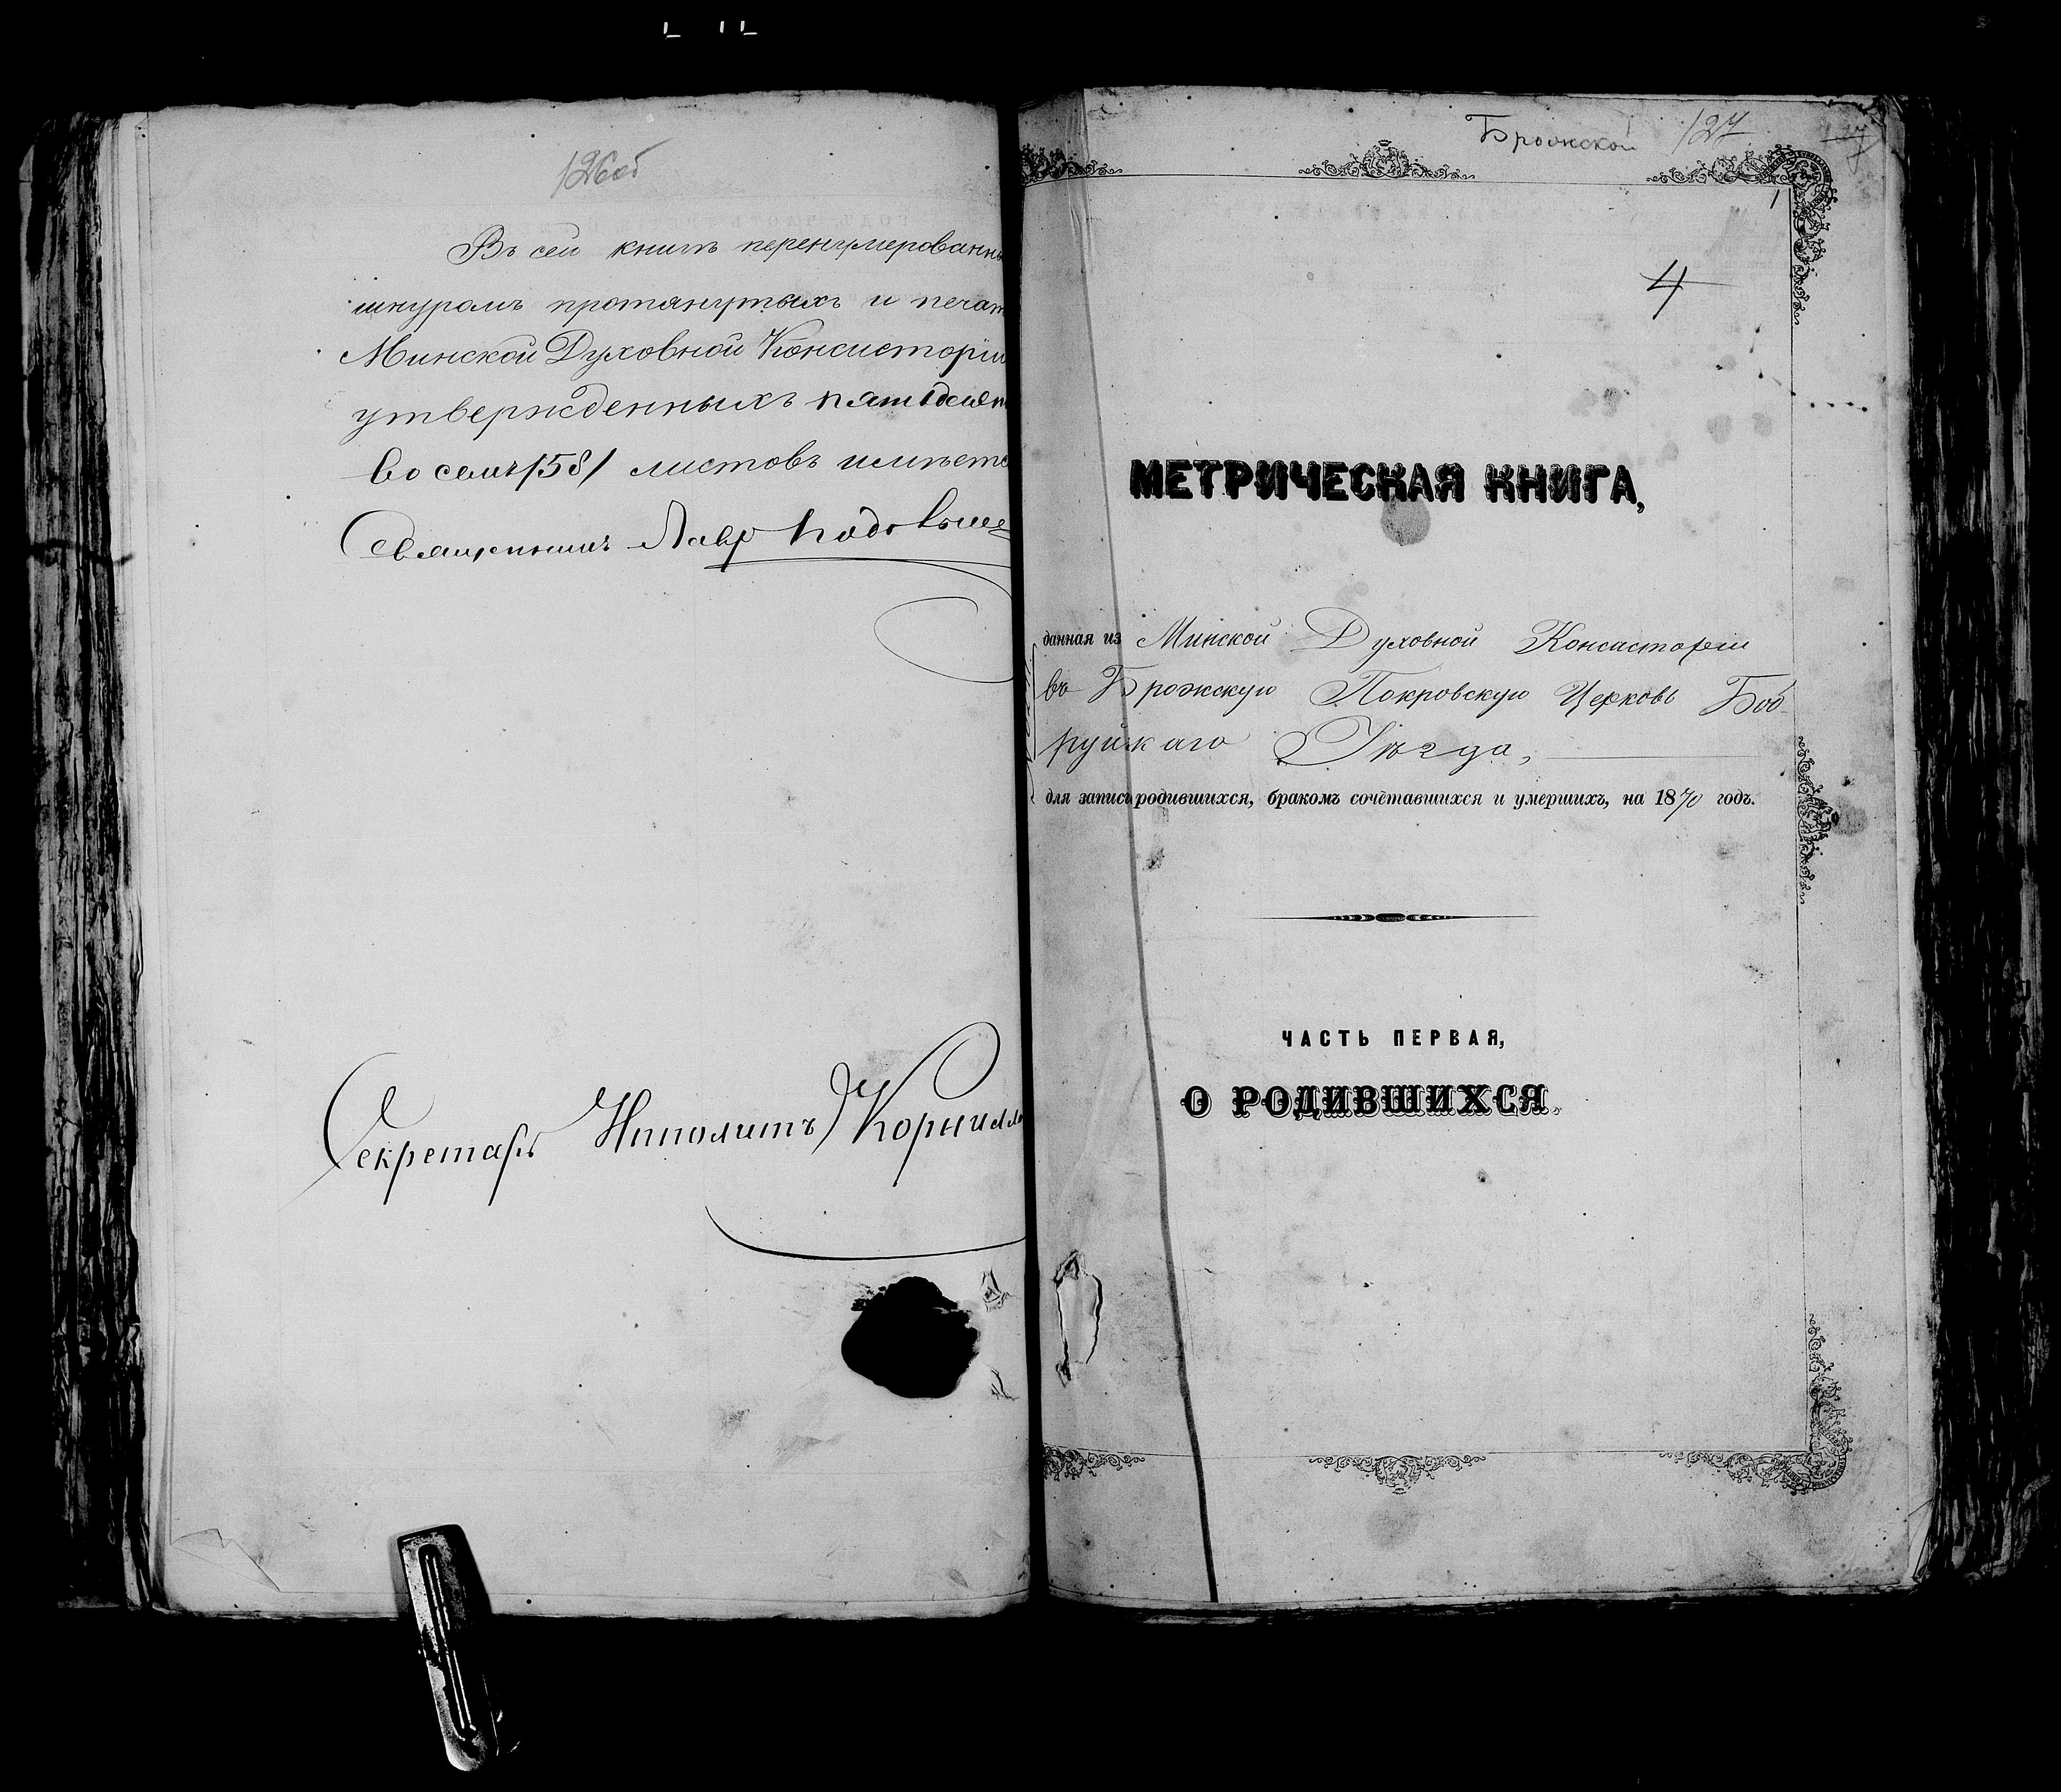 126об
Въ сей книгѣ перенумерованны
шнуромъ протянутыхъ и печат
Минской Духовной Консисторіи
утвержденныхъ пятьдесят
восемь /58/ листовъ имѣетс
Священникъ Лавр
Секретарь Ипполитъ Корнилл
Брожской 127
4
МЕТРИЧЕСКАЯ КНИГА,
данная из Минской Духовной Консисторіи
въ Брожскую Покровскую Церковь Боб-
руйскаго Уѣзда,
для записи родившихся, бракомъ сочетавшихся и умершихъ, на 1870 годъ.
ЧАСТЬ ПЕРВАЯ,
О РОДИВШИХСЯ.